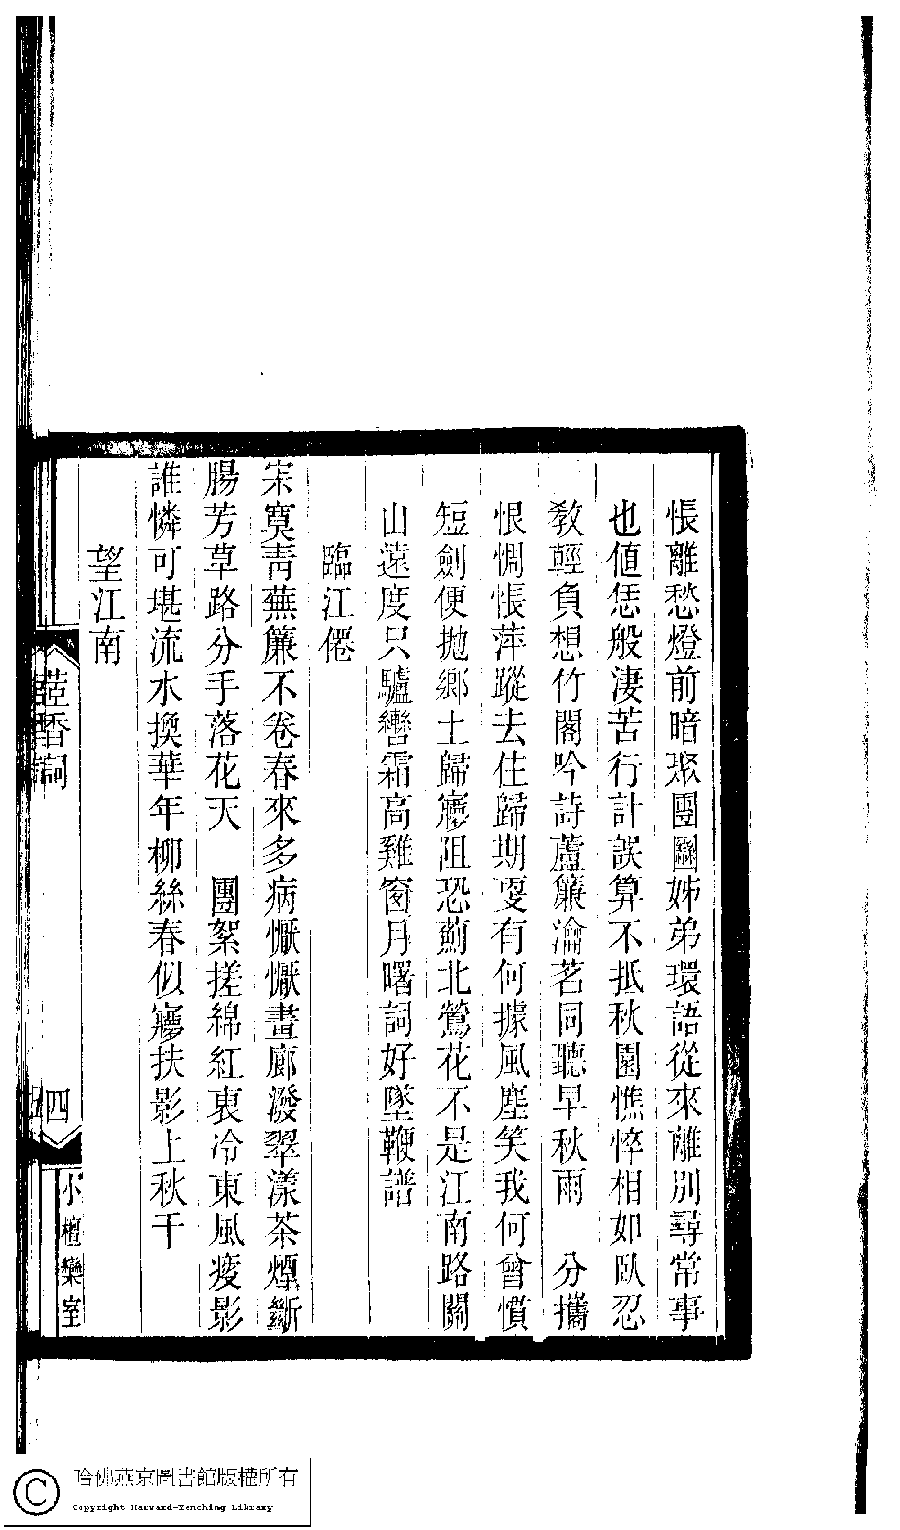 悵離愁燈前暗聚團圞姊弟環語從來離別尋常事
也値恁般淒苦行計誤算不抵秋園憔悴相如臥忍
敎輕負想竹閣吟詩蘆簾瀹茗同聽早秋雨　分攜
恨惆悵萍蹤去住歸期更有何據風塵笑我何曾慣
短劍便拋鄉土歸㝱阻恐薊北鶯花不是江南路關
山遠度只驢轡霜高雞窗月曙詞好墜鞭譜
臨江僊
寂寞靑蕪簾不卷春來多病懨懨畫廊潑翠漾茶煙斷
腸芳草路分手落花天　團絮搓綿紅衷冷東風瘦影
誰憐可堪流水換華年柳絲春似㝱扶影上秋千
望江南
茝香詞
四
小檀欒室
哈佛燕京圖書館版權所有
Copyright Harvard-Yenching Library